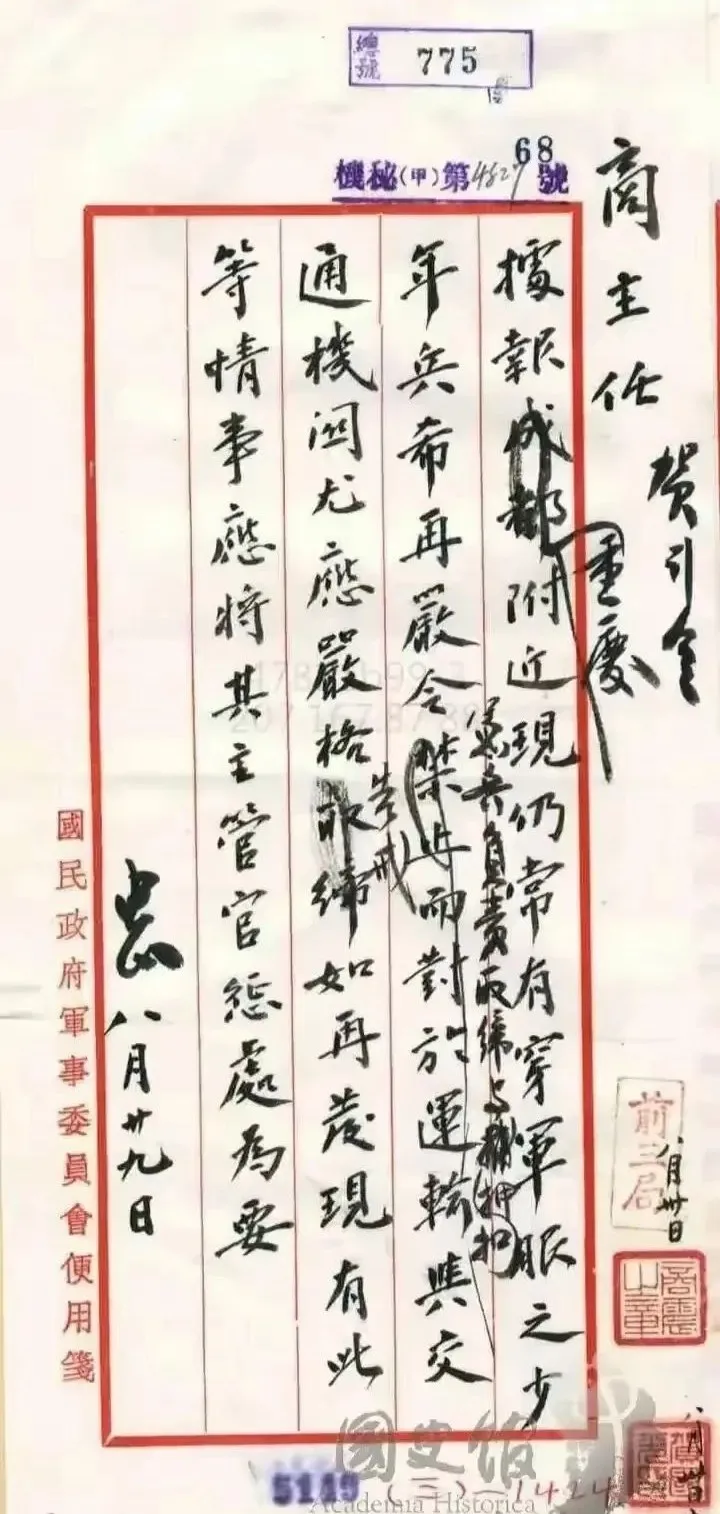 總號 775
機秘(甲)第4827號
68
商主任
賀
重慶
據報成都附近現仍常有穿軍服之少
憲兵負責取締與捕押
年兵希再嚴令禁止而對於運輸與交
告戒
通機關尤應嚴格取締如再發現有此
等情事應將其主管官懲處為要
中正
八月廿九日
國民政府軍事委員會便用箋
前三局
八月卅日
國史館
Academia Historica
5149
(三)-1424
八月卅日